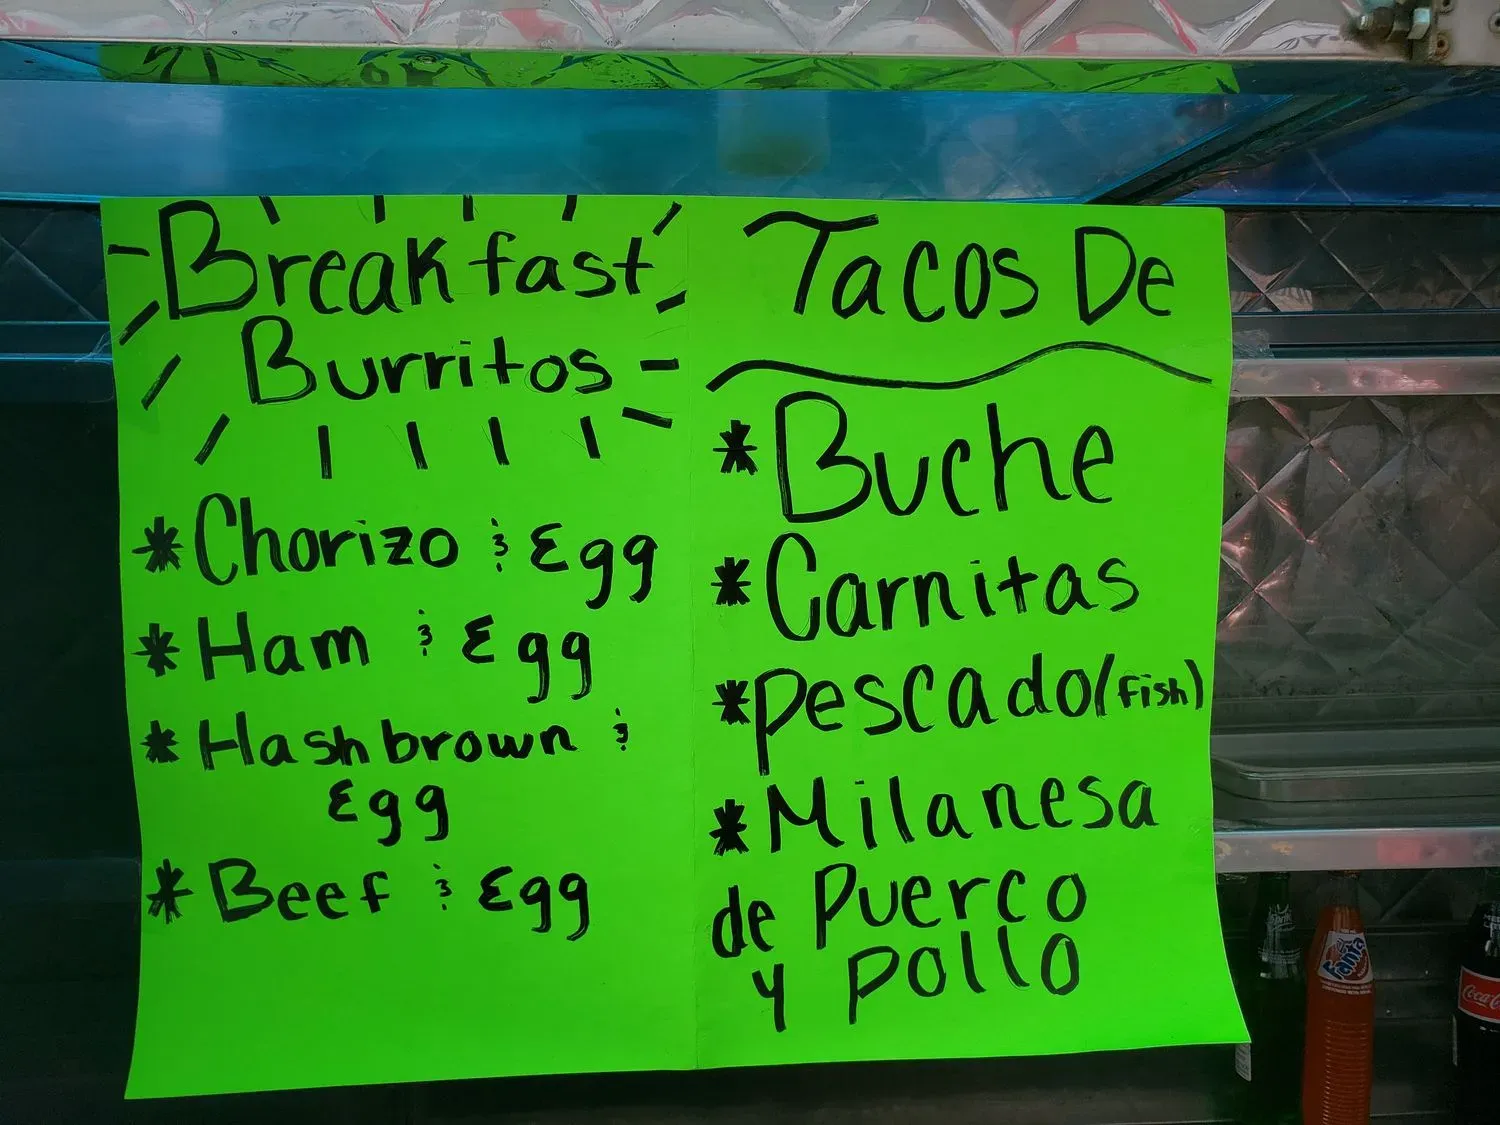 Breakfast
Burritos
* Chorizo & Egg
* Ham & Egg
* Hashbrown &
Egg
* Beef & Egg
Tacos De
* Buche
* Carnitas
* Pescado (Fish)
* Milanesa
de Puerco
y Pollo
Sprite
Fanta
Coca-C